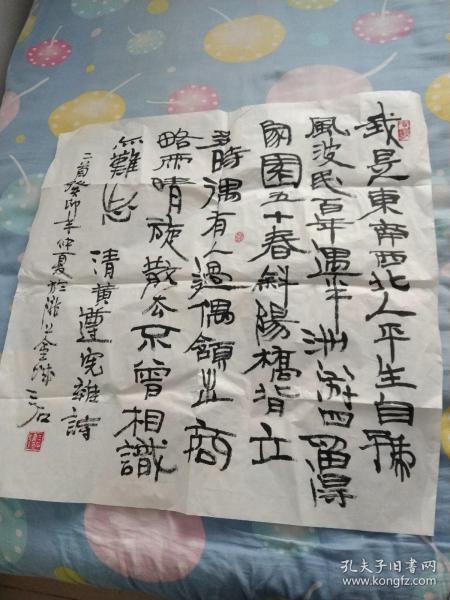 我是東南西北人平生自號
風波民百年過半洲游四留得
家園五十春斜陽橋背立
多時偶有人過偶頷之商
略雨晴旋散去不曾相識
亦難忘
清黃遵憲雜詩
二首癸卯年仲夏於
三石
孔夫子旧书网
www.kongfz.com